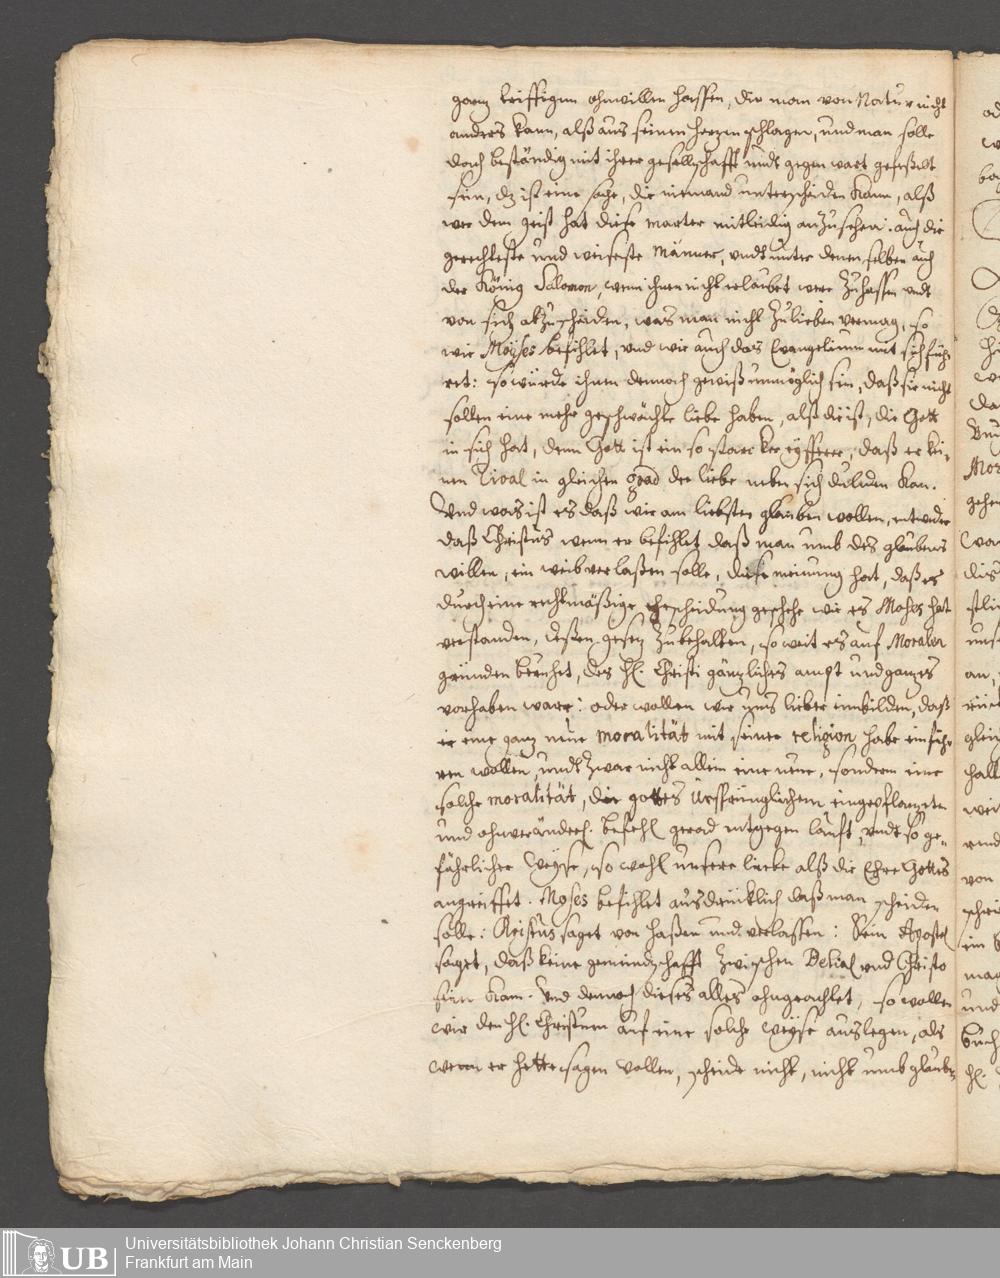 ganz leiffigen ohnwillen hassen, die man von Natur nicht
anders kann, alß aus seinem herzen schlagen, und man solle
doch beständig mit ihrer gesellschafft undt gegenwart gefeßelt
sein, dz ist eine sache, die niemand unterscheiden kann, alß
wer den geist hat diese marter mitleidig anzusehen. auch die
gerechteste und weiseste Männer, undt unter denenselben auch
der König Salomon, wenn ihnen nicht erlaubet were zu hassen undt
von sich abzuscheiden, was man nicht zu lieben vermag, so
wie Moyses befihlet, und wie auch das Evangelium mit sich füh-
ret: so würde ihnen dennoch gewiß unmöglich sein, daß sie nicht
sollen eine mehr geschwächte liebe haben, alß die ist, die Gott
in sich hat, denn Gott ist ein so starcker eyfferer, daß er kei-
nen Rival in gleichen grad der liebe neben sich dulden kan.
Und was ist es daß wir am liebsten glauben wollen, entweder
daß Christus wenn er befihlet daß man umb des glaubens
willen, ein weib verlaßen solle, diese meinung hat, daß es
durch eine rechtmäßige Ehescheidung geschehe wie es Moses hat
verstanden, deßen gesez zu behalten, so weit es auf Moralen
gründen beruhet, des H. Christi gänzliches ampt und ganzes
vorhaben ware: oder wollen wir uns lieber einbilden, daß
er eine ganz neue moralität mit seiner religion habe einfüh-
ren wollen, undt zwar nicht allein eine neue, sondern eine
solche moralität, die gottes Ursprünglichem eingepflanzten
und ohnveränderl. befehl gerad entgegen läuft, undt so ge-
fährlicher Weyse, so wohl unsere liebe alß die Ehre Gottes
angreiffet. Moses befihlet ausdrücklich daß man scheiden
solle: Christus saget von haßen und verlassen: Sein Apostel
saget, daß keine gemeindschafft zwischen Belial und Christo
sein kan. Und dennoch dieses alles ohngeachtet, so wollen
wir den H. Christum auf eine solche weyse auslegen, als
wenn er hette sagen wollen, scheide nicht, nicht umb glaubens
Universitätsbibliothek Johann Christian Senckenberg
Frankfurt am Main
UB